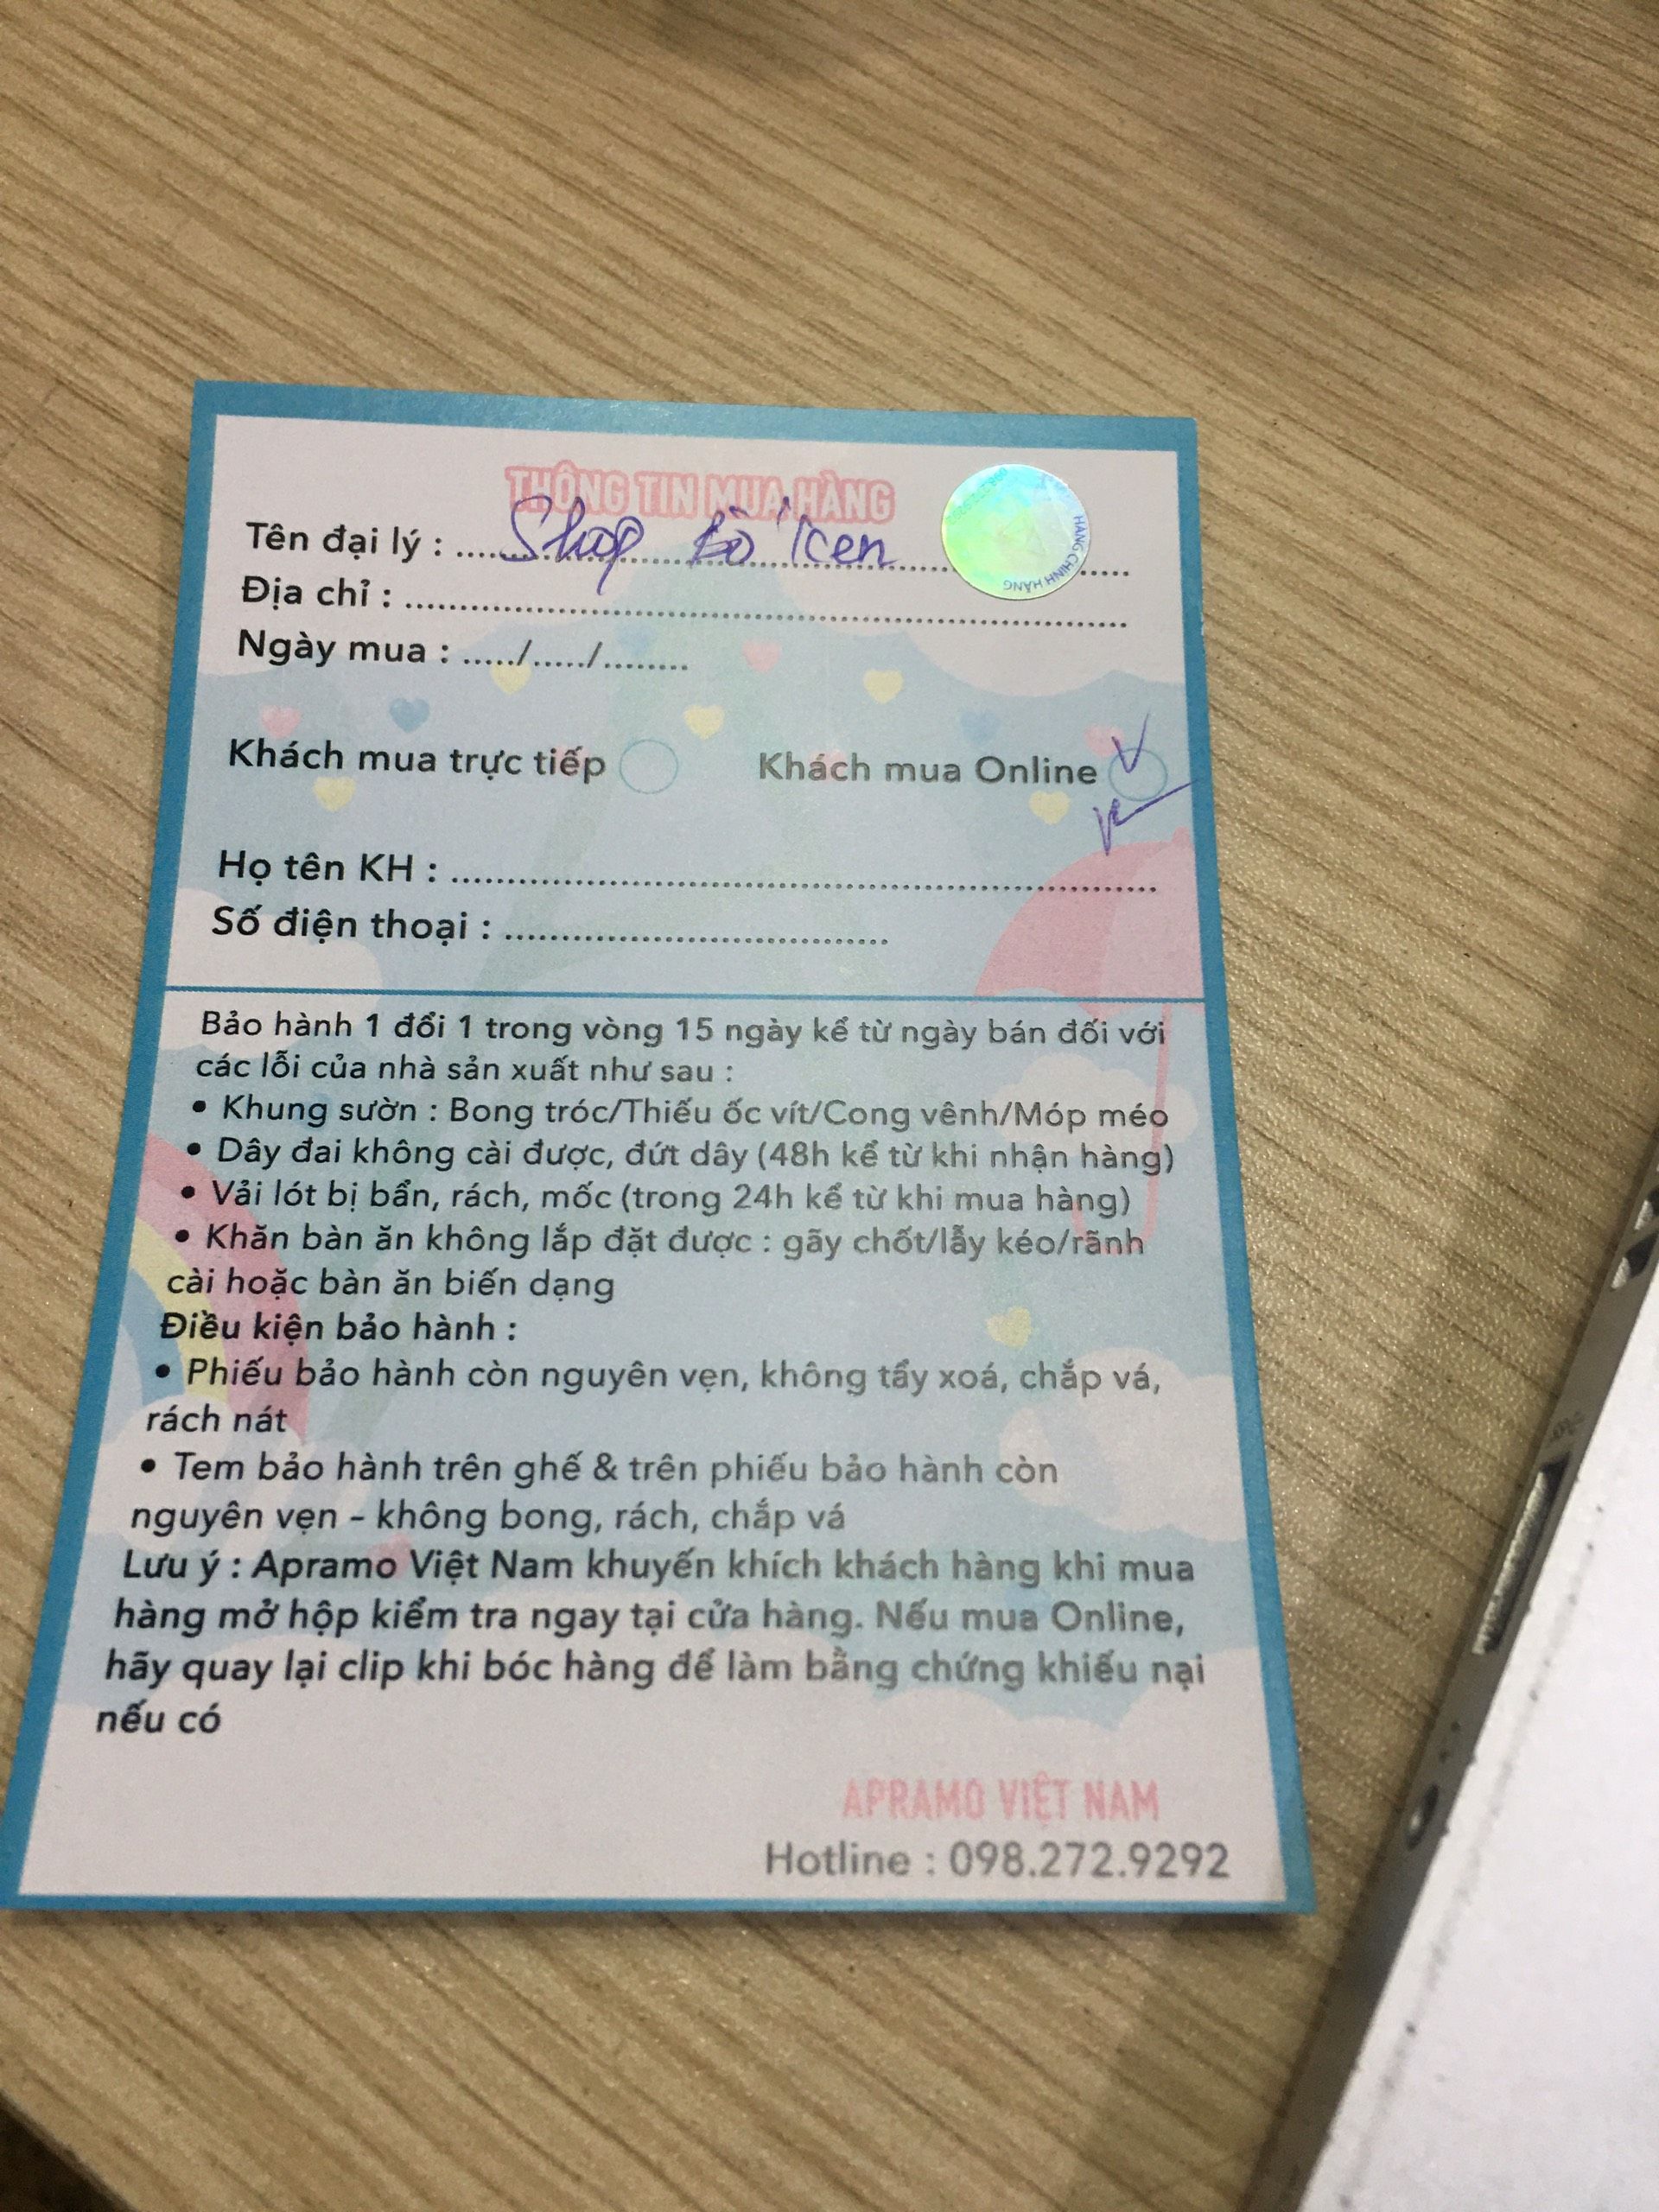 THÔNG TIN MUA HÀNG
Tên đại lý : Shop Bố Ken
HÀNG CHÍNH HÃNG
Địa chỉ :
Ngày mua : ...../...../........
Khách mua trực tiếp Khách mua Online V
Họ tên KH :
Số điện thoại :
Bảo hành 1 đổi 1 trong vòng 15 ngày kể từ ngày bán đối với
các lỗi của nhà sản xuất như sau :
• Khung sườn : Bong tróc/Thiếu ốc vít/Cong vênh/Móp méo
• Dây đai không cài được, đứt dây (48h kể từ khi nhận hàng)
• Vải lót bị bẩn, rách, mốc (trong 24h kể từ khi mua hàng)
• Khăn bàn ăn không lắp đặt được : gãy chốt/lẫy kéo/rãnh
cài hoặc bàn ăn biến dạng
Điều kiện bảo hành :
• Phiếu bảo hành còn nguyên vẹn, không tẩy xoá, chắp vá,
rách nát
• Tem bảo hành trên ghế & trên phiếu bảo hành còn
nguyên vẹn – không bong, rách, chắp vá
Lưu ý : Apramo Việt Nam khuyến khích khách hàng khi mua
hàng mở hộp kiểm tra ngay tại cửa hàng. Nếu mua Online,
hãy quay lại clip khi bóc hàng để làm bằng chứng khiếu nại
nếu có
APRAMO VIỆT NAM
Hotline : 098.272.9292